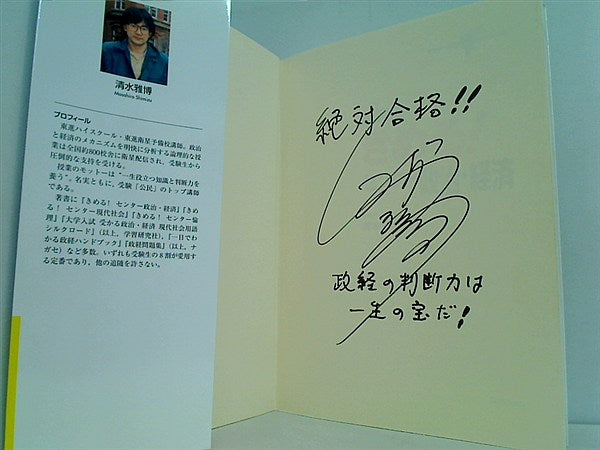 清水雅博
Masahiro Shimizu
プロフィール
東進ハイスクール・東進衛星予備校講師。政治
と経済のメカニズムを明快に分析する論理的な授
業は全国約800校舎に衛星配信され、受験生から
圧倒的な支持を受ける。
授業のモットーは“一生役立つ知識と判断力を
養う”。名実ともに、受験「公民」のトップ講師
である。
著書に『きめる! センター政治・経済』『きめ
る! センター現代社会』『きめる! センター倫
理』『大学入試 受かる政治・経済 現代社会用語
シルクロード』(以上、学習研究社)、『一日でわ
かる政経ハンドブック』『政経問題集』(以上、ナ
ガセ)など多数。いずれも受験生の8割が愛用す
る定番であり、他の追随を許さない。
絶対合格!!
政経の判断力は
一生の宝だ!